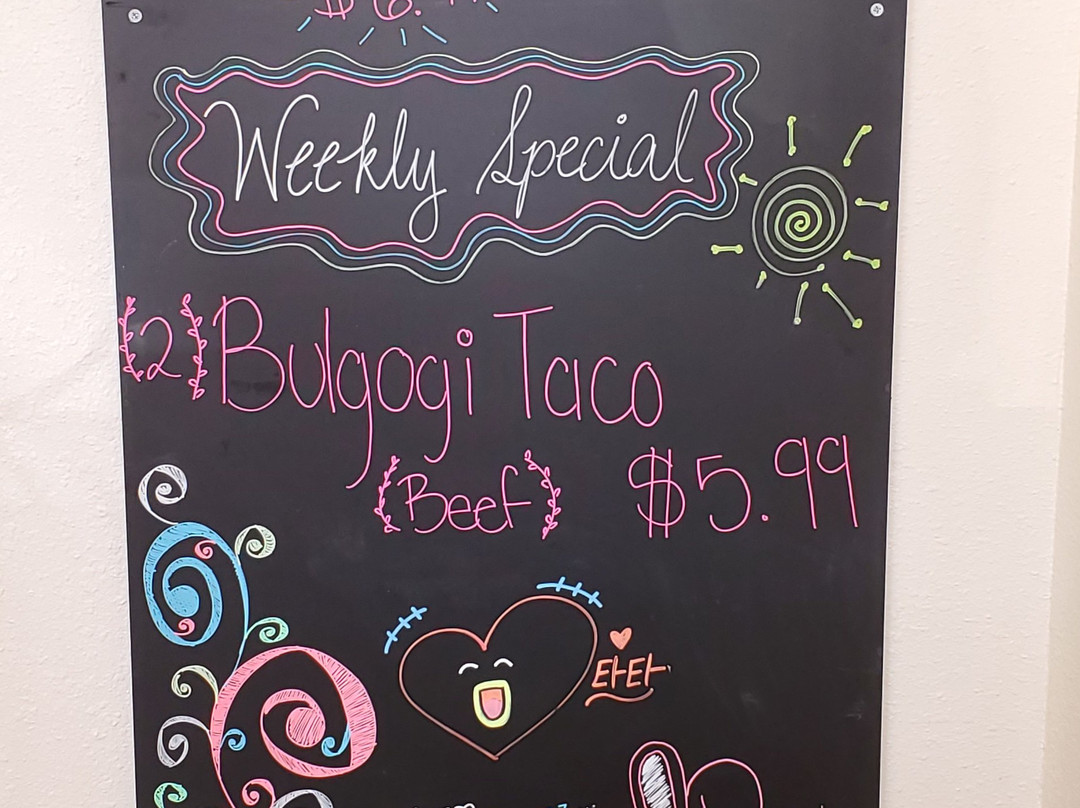 Weekly Special
(2) Bulgogi Taco
(Beef) $5.99
타타